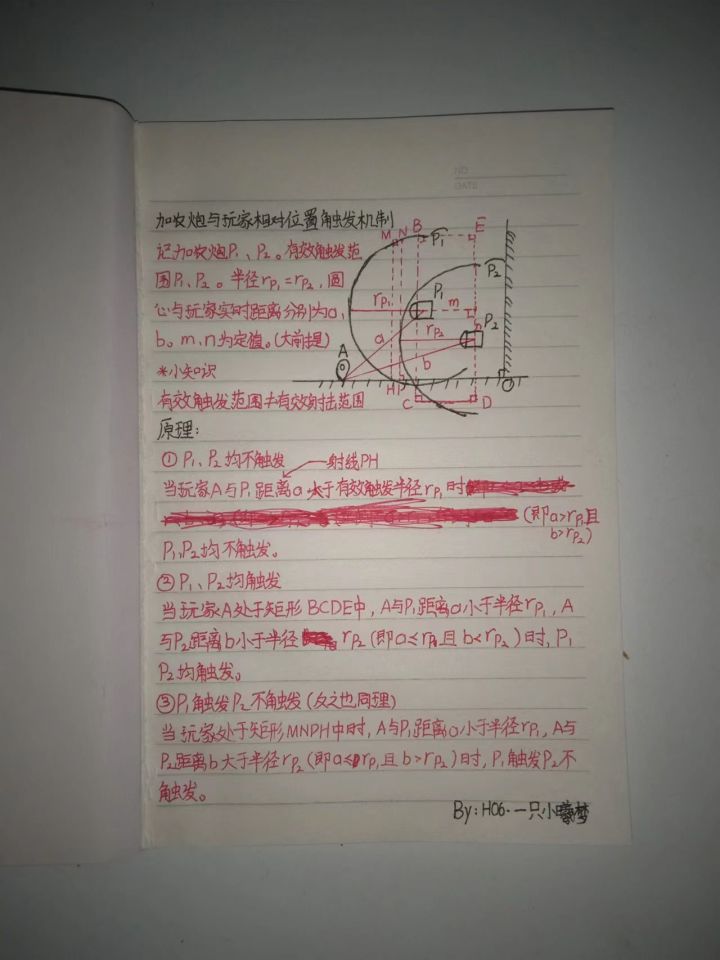 加农炮与玩家相对位置触发机制
记加农炮P₁、P₂。有效触发范
围P₁、P₂。半径rp₁=rp₂,圆
心与玩家实时距离分别为a、
b。m、n为定值。(大前提)
*小知识
有效触发范围≠有效射击范围
M N B E
P₁ P₂
rp₁ P₁ m
a rp₂ n P₂
A b
H P O
C D
原理:
①P₁、P₂均不触发 射线PH
当玩家A与P₁距离a大于有效触发半径rp₁时
(即a>rp₁且
b>rp₂)
P₁,P₂均不触发。
②P₁、P₂均触发
当玩家A处于矩形BCDE中,A与P₁距离a小于半径rp₁,A
与P₂距离b小于半径 rp₂(即a≤rp₁且b<rp₂)时,P₁
P₂均触发。
③P₁触发P₂不触发(反之也同理)
当玩家处于矩形MNPH中时,A与P₁距离a小于半径rp₁,A与
P₂距离b大于半径rp₂(即a≤rp₁且b>rp₂)时,P₁触发P₂不
触发。
By:H06·一只小梦